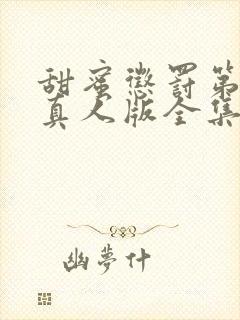 甜蜜懲罰第
真人版全集
幽夢什